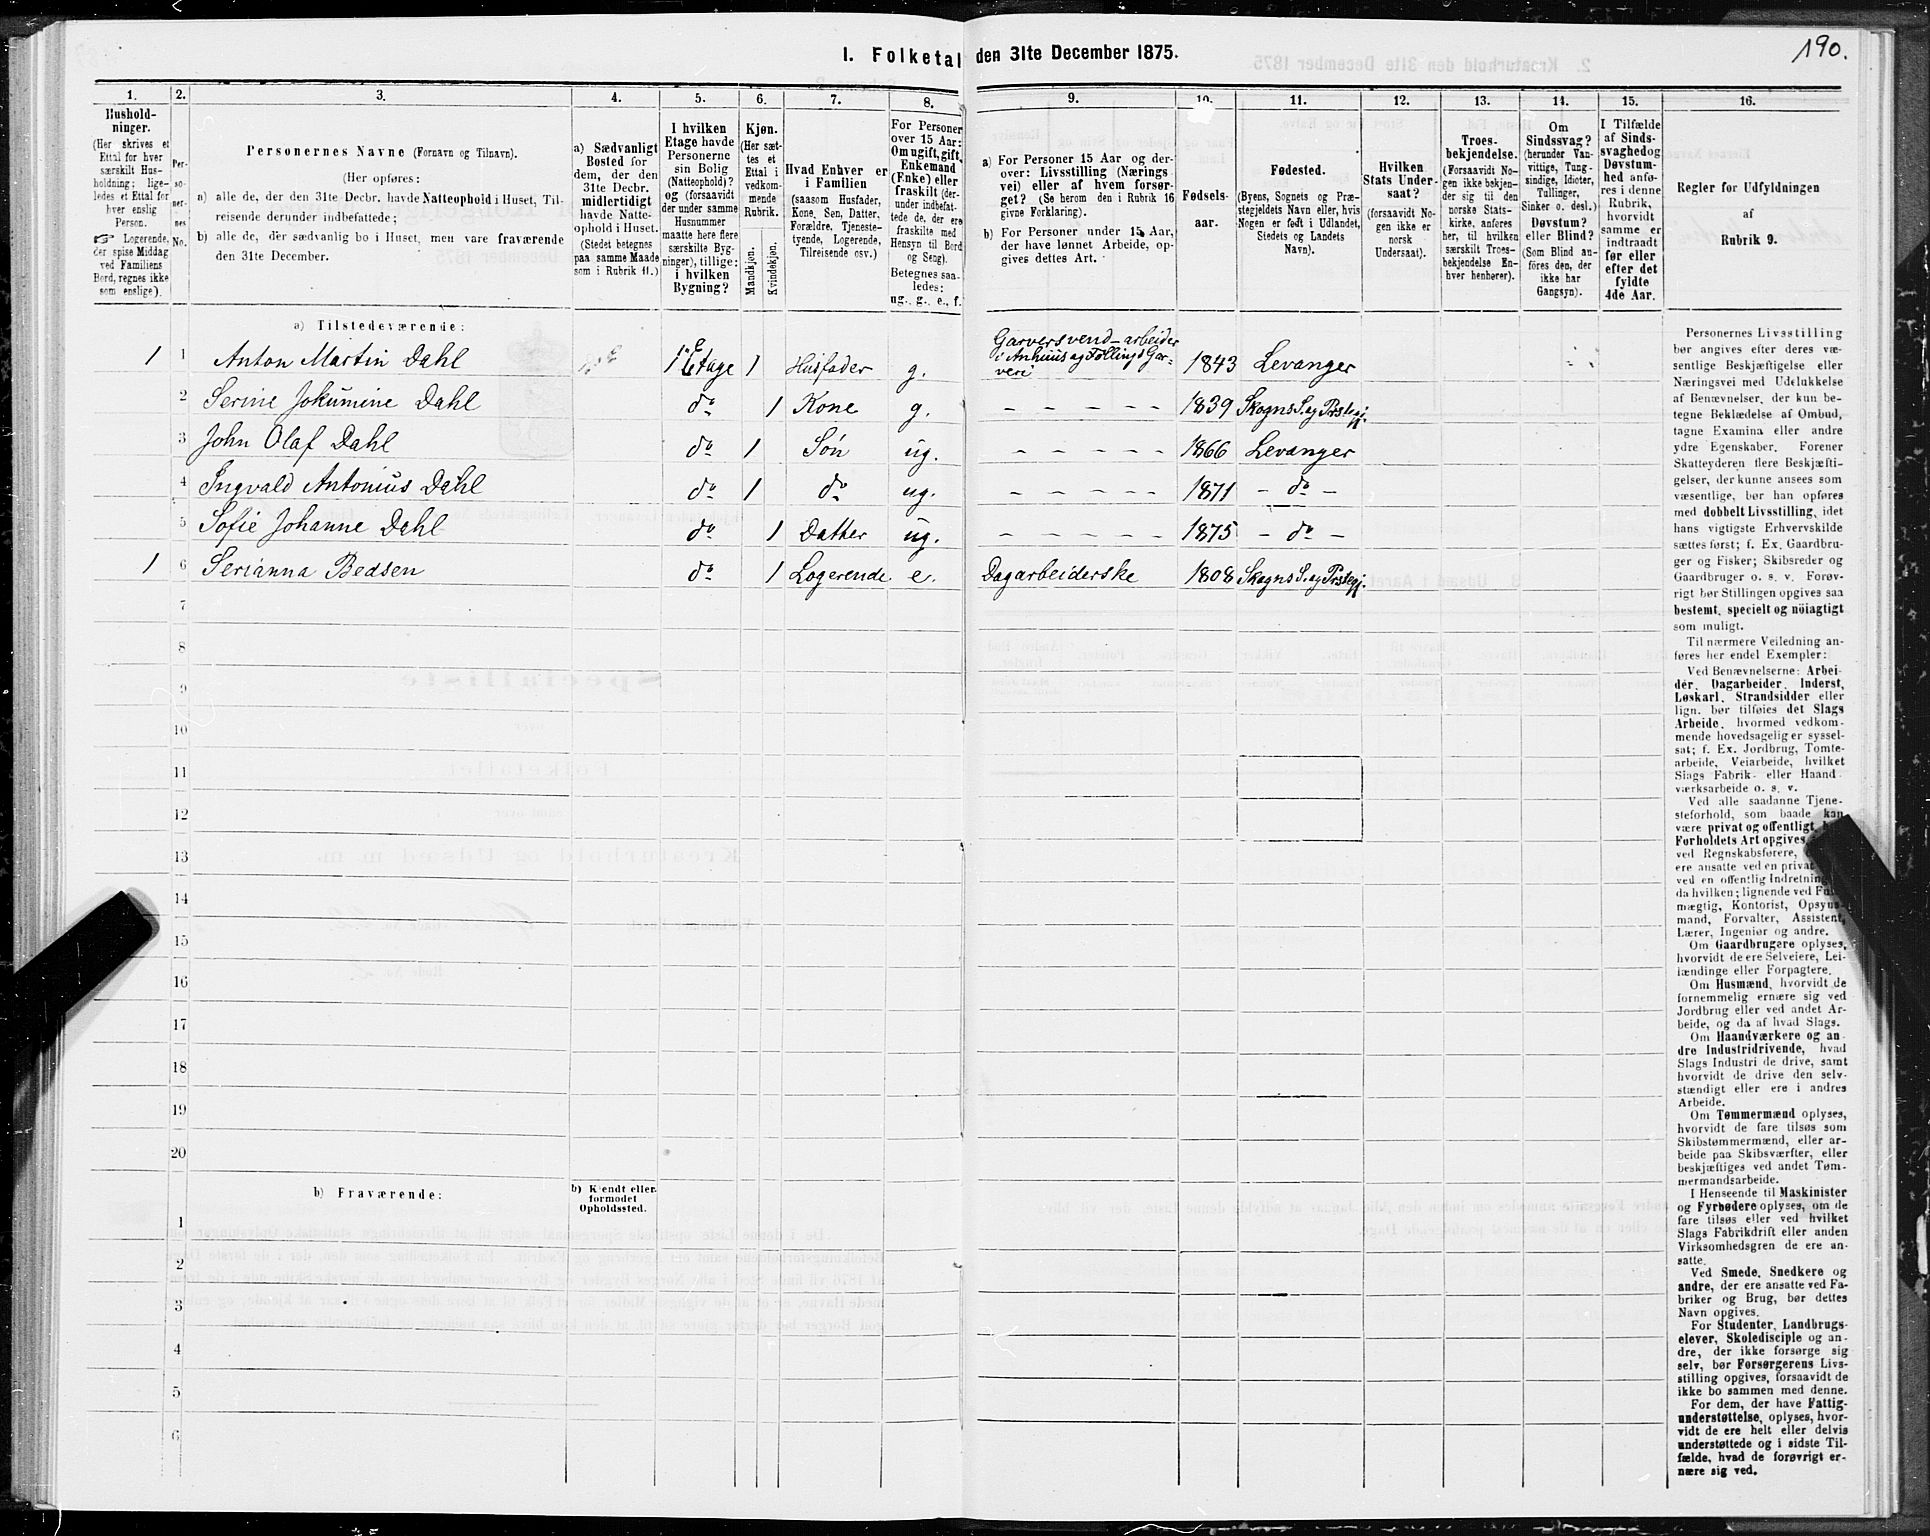 190.
I. Folketal den 31te December 1875.
1. 2. 3. 4. 5. 6. 7. 8. 9. 10. 11. 12. 13. 14. 15. 16.
Hushold-
ninger.
(Her skrives et
Ettal for hver
særskilt Hus-
holdning; lige-
ledes et Ettal for
hver enslig
Person.
☞ Logerende,
der spise Middag
ved Familiens
Bord, regnes ikke
som enslige).
Per-
so-
ner-
nes
No.
Personernes Navne (Fornavn og Tilnavn).
(Her opføres:
a) alle de, der den 31te Decbr. havde Natteophold i Huset, Til-
reisende derunder indbefattede;
b) alle de, der sædvanlig bo i Huset, men vare fraværende
den 31te December.
a) Sædvanligt
Bosted for
dem, der den
31te Decbr.
midlertidigt
havde Natte-
ophold i Huset.
(Stedet betegnes
paa samme Maade
som i Rubrik 11.)
I hvilken
Etage havde
Personerne
sin Bolig
(Natteophold)?
og (forsaavidt
der under samme
Husnummer
maatte høre flere
særskilte Byg-
ninger), tillige:
i hvilken
Bygning?
Kjøn.
(Her sæt-
tes et
Ettal i
vedkom-
mende
Rubrik.
Mandkjøn.
Kvindekjøn.
Hvad Enhver er
i Familien
(saasom Husfader,
Kone, Søn, Datter,
Forældre, Tjeneste-
tyende, Logerende,
Tilreisende osv.)
For Personer
over 15 Aar:
Om ugift, gift,
Enkemand
(Enke) eller
fraskilt (der-
under indbefat-
tede de, der ere
fraskilte med
Hensyn til Bord
og Seng).
Betegnes saa-
ledes:
ug., g., e., f.
a) For Personer 15 Aar og der-
over: Livsstilling (Nærings-
vei) eller af hvem forsør-
get? (Se herom den i Rubrik 16
givne Forklaring).
b) For Personer under 15 Aar,
der have lønnet Arbeide, op-
gives dettes Art.
Fødsels-
aar.
Fødested.
(Byens, Sognets og Præ-
stegjeldets Navn eller, hvis
Nogen er født i Udlandet,
Stedets og Landets
Navn).
Hvilken
Stats Under-
saat?
(forsaavidt No-
gen ikke er
norsk
Undersaat).
Troes-
bekjendelse.
(Forsaavidt No-
gen ikke bekjen-
der sig til den
norske Stats-
kirke, anføres
her, til hvilken
særskilt Troes-
bekjendelse En-
hver henhører).
Om
Sindssvag?
(herunder Van-
vittige, Tung-
sindige, Idioter,
Tullinger,
Sinker o. desl.)
Døvstum?
eller Blind?
(Som Blind an-
føres den, der
ikke har
Gangsyn).
I Tilfælde
af Sinds-
svaghed og
Døvstum-
hed anfø-
res i denne
Rubrik,
hvorvidt
samme er
indtraadt
før eller
efter det
fyldte
4de Aar.
Regler for Udfyldningen
af
Rubrik 9.
a) Tilstedeværende:
1 1 Anton Martin Dahl 1ste Etage 1 Husfader g. Garversvend – arbeider i Anhuus og Føllings Gar-veri 1843 Levanger
2 Serine Jokumine Dahl do 1 Kone g. – – – – – 1839 Skogns S. og Prstegj.
3 John Olaf Dahl do 1 Søn ug. – – – – – 1866 Levanger
4 Ingvald Antonius Dahl do 1 do ug. – – – – – 1871 – do –
5 Sofie Johanne Dahl do 1 Datter ug. – – – – – 1875 – do –
1 6 Serianna Bedsen do 1 Logerende e. Dagarbeiderske 1808 Skogns S. og Prstegj.
7
8
9
10
11
12
13
14
15
16
17
18
19
20
b) Fraværende:
b) Kjendt eller
formodet
Opholdssted.
1
2
3
4
5
6
Personernes Livsstilling
bør angives efter deres væ-
sentlige Beskjæftigelse eller
Næringsvei med Udelukkelse
af Benævnelser, der kun be-
tegne Beklædelse af Ombud,
tagne Examina eller andre
ydre Egenskaber. Forener
Skatteyderen flere Beskjæfti-
gelser, der kunne ansees som
væsentlige, bør han opføres
med dobbelt Livsstilling, idet
hans vigtigste Erhvervskilde
sættes først; f. Ex. Gaardbru-
ger og Fisker; Skibsreder og
Gaardbruger o. s. v. Forøv-
rigt bør Stillingen opgives saa
bestemt, specielt og nöiagtigt
som muligt.
Til nærmere Veiledning an-
føres her endel Exempler:
Ved Benævnelserne: Arbei-
der, Dagarbeider, Inderst,
Løskarl, Strandsidder eller
lign. bør tilføies det Slags
Arbeide, hvormed vedkom-
mende hovedsagelig er syssel-
sat; f. Ex. Jordbrug, Tomte-
arbeide, Veiarbeide, hvilket
Slags Fabrik- eller Haand-
værksarbeide o. s. v.
Ved alle saadanne Tjene-
steforhold, som baade kan
være privat og offentligt,
Forholdets Art opgives,
ved Regnskabsførere,
ere ansatte ved en privat
ved en offentlig Indretning
da hvilken; lignende ved Fuld-
mægtig, Kontorist, Opsyns-
mand, Forvalter, Assistent,
Lærer, Ingeniør og andre.
Om Gaardbrugere oplyses,
hvorvidt de ere Selveiere, Lei-
lændinge eller Forpagtere.
Om Husmænd, hvorvidt de
fornemmelig ernære sig ved
Jordbrug eller ved andet Ar-
beide, og da af hvad Slags.
Om Haandværkere og an-
dre Industridrivende, hvad
Slags Industri de drive, samt
hvorvidt de drive den selv-
stændigt eller ere i andres
Arbeide.
Om Tømmermænd oplyses,
hvorvidt de fare tilsøs som
Skibstømmermænd, eller ar-
beide paa Skibsværfter, eller
beskjæftiges ved andet Tøm-
mermandsarbeide.
I Henseende til Maskinister
og Fyrbødere oplyses, om de
fare tilsøs eller ved hvilket
Slags Fabrikdrift eller anden
Virksomhedsgren de ere an-
satte.
Ved Smede, Snedkere og
andre, der ere ansatte ved Fa-
briker og Brug, bør dettes
Navn opgives.
For Studenter, Landbrugs-
elever, Skoledisciple og an-
dre, der ikke forsørge sig
selv, bør Forsørgerens Livs-
stilling opgives, forsaavidt de
ikke bo sammen med denne.
For dem, der have Fattig-
understøttelse, oplyses, hvor-
vidt de ere helt eller delvis
understøttede og i sidste Til-
fælde, hvad de forøvrigt er-
nære sig ved.